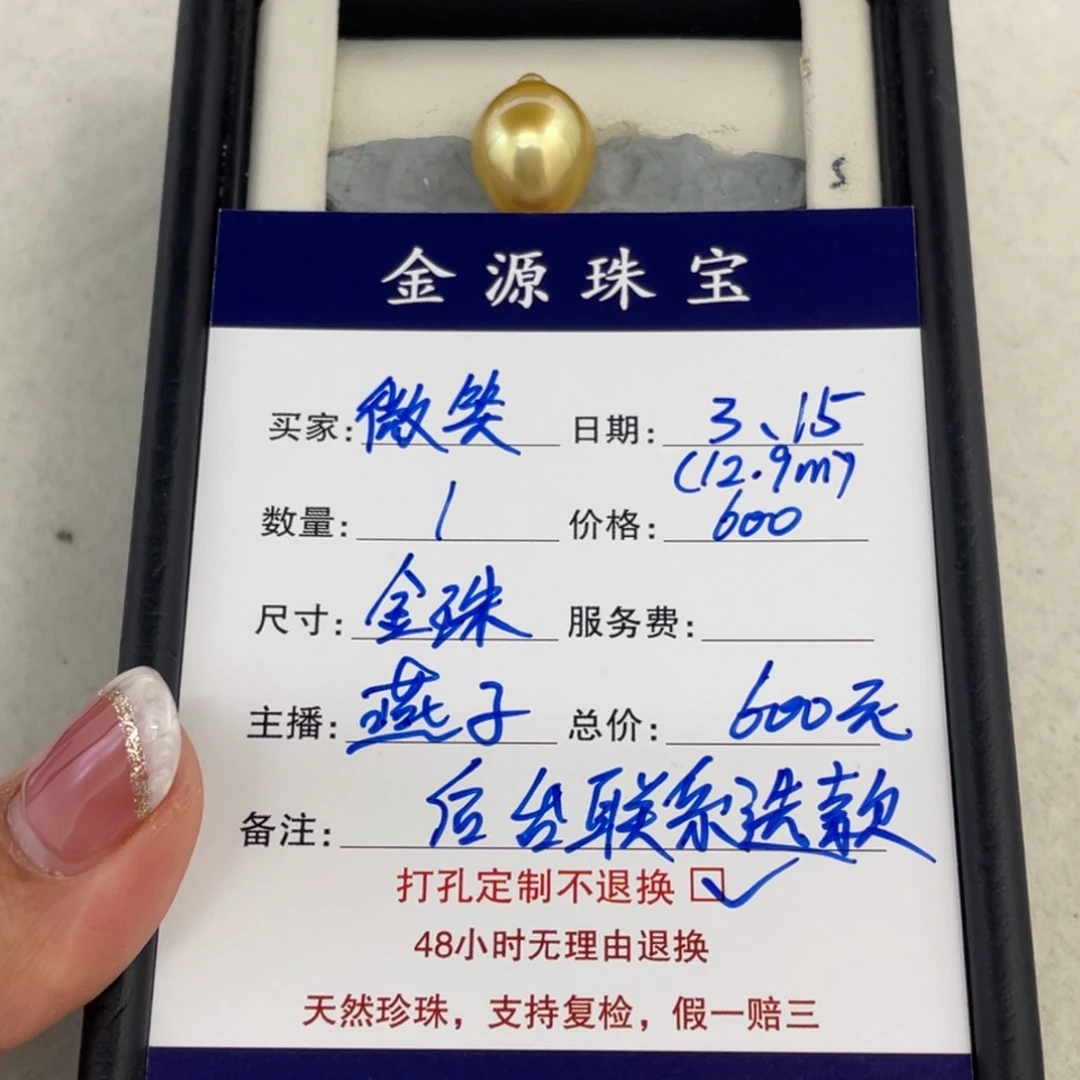 金源珠宝
买家: 微笑 日期: 3、15
(12.9m)
数量: 1 价格: 600
尺寸: 金珠 服务费:
主播: 燕子 总价: 600元
备注: 后台联系选款
打孔定制不退换
48小时无理由退换
天然珍珠，支持复检，假一赔三